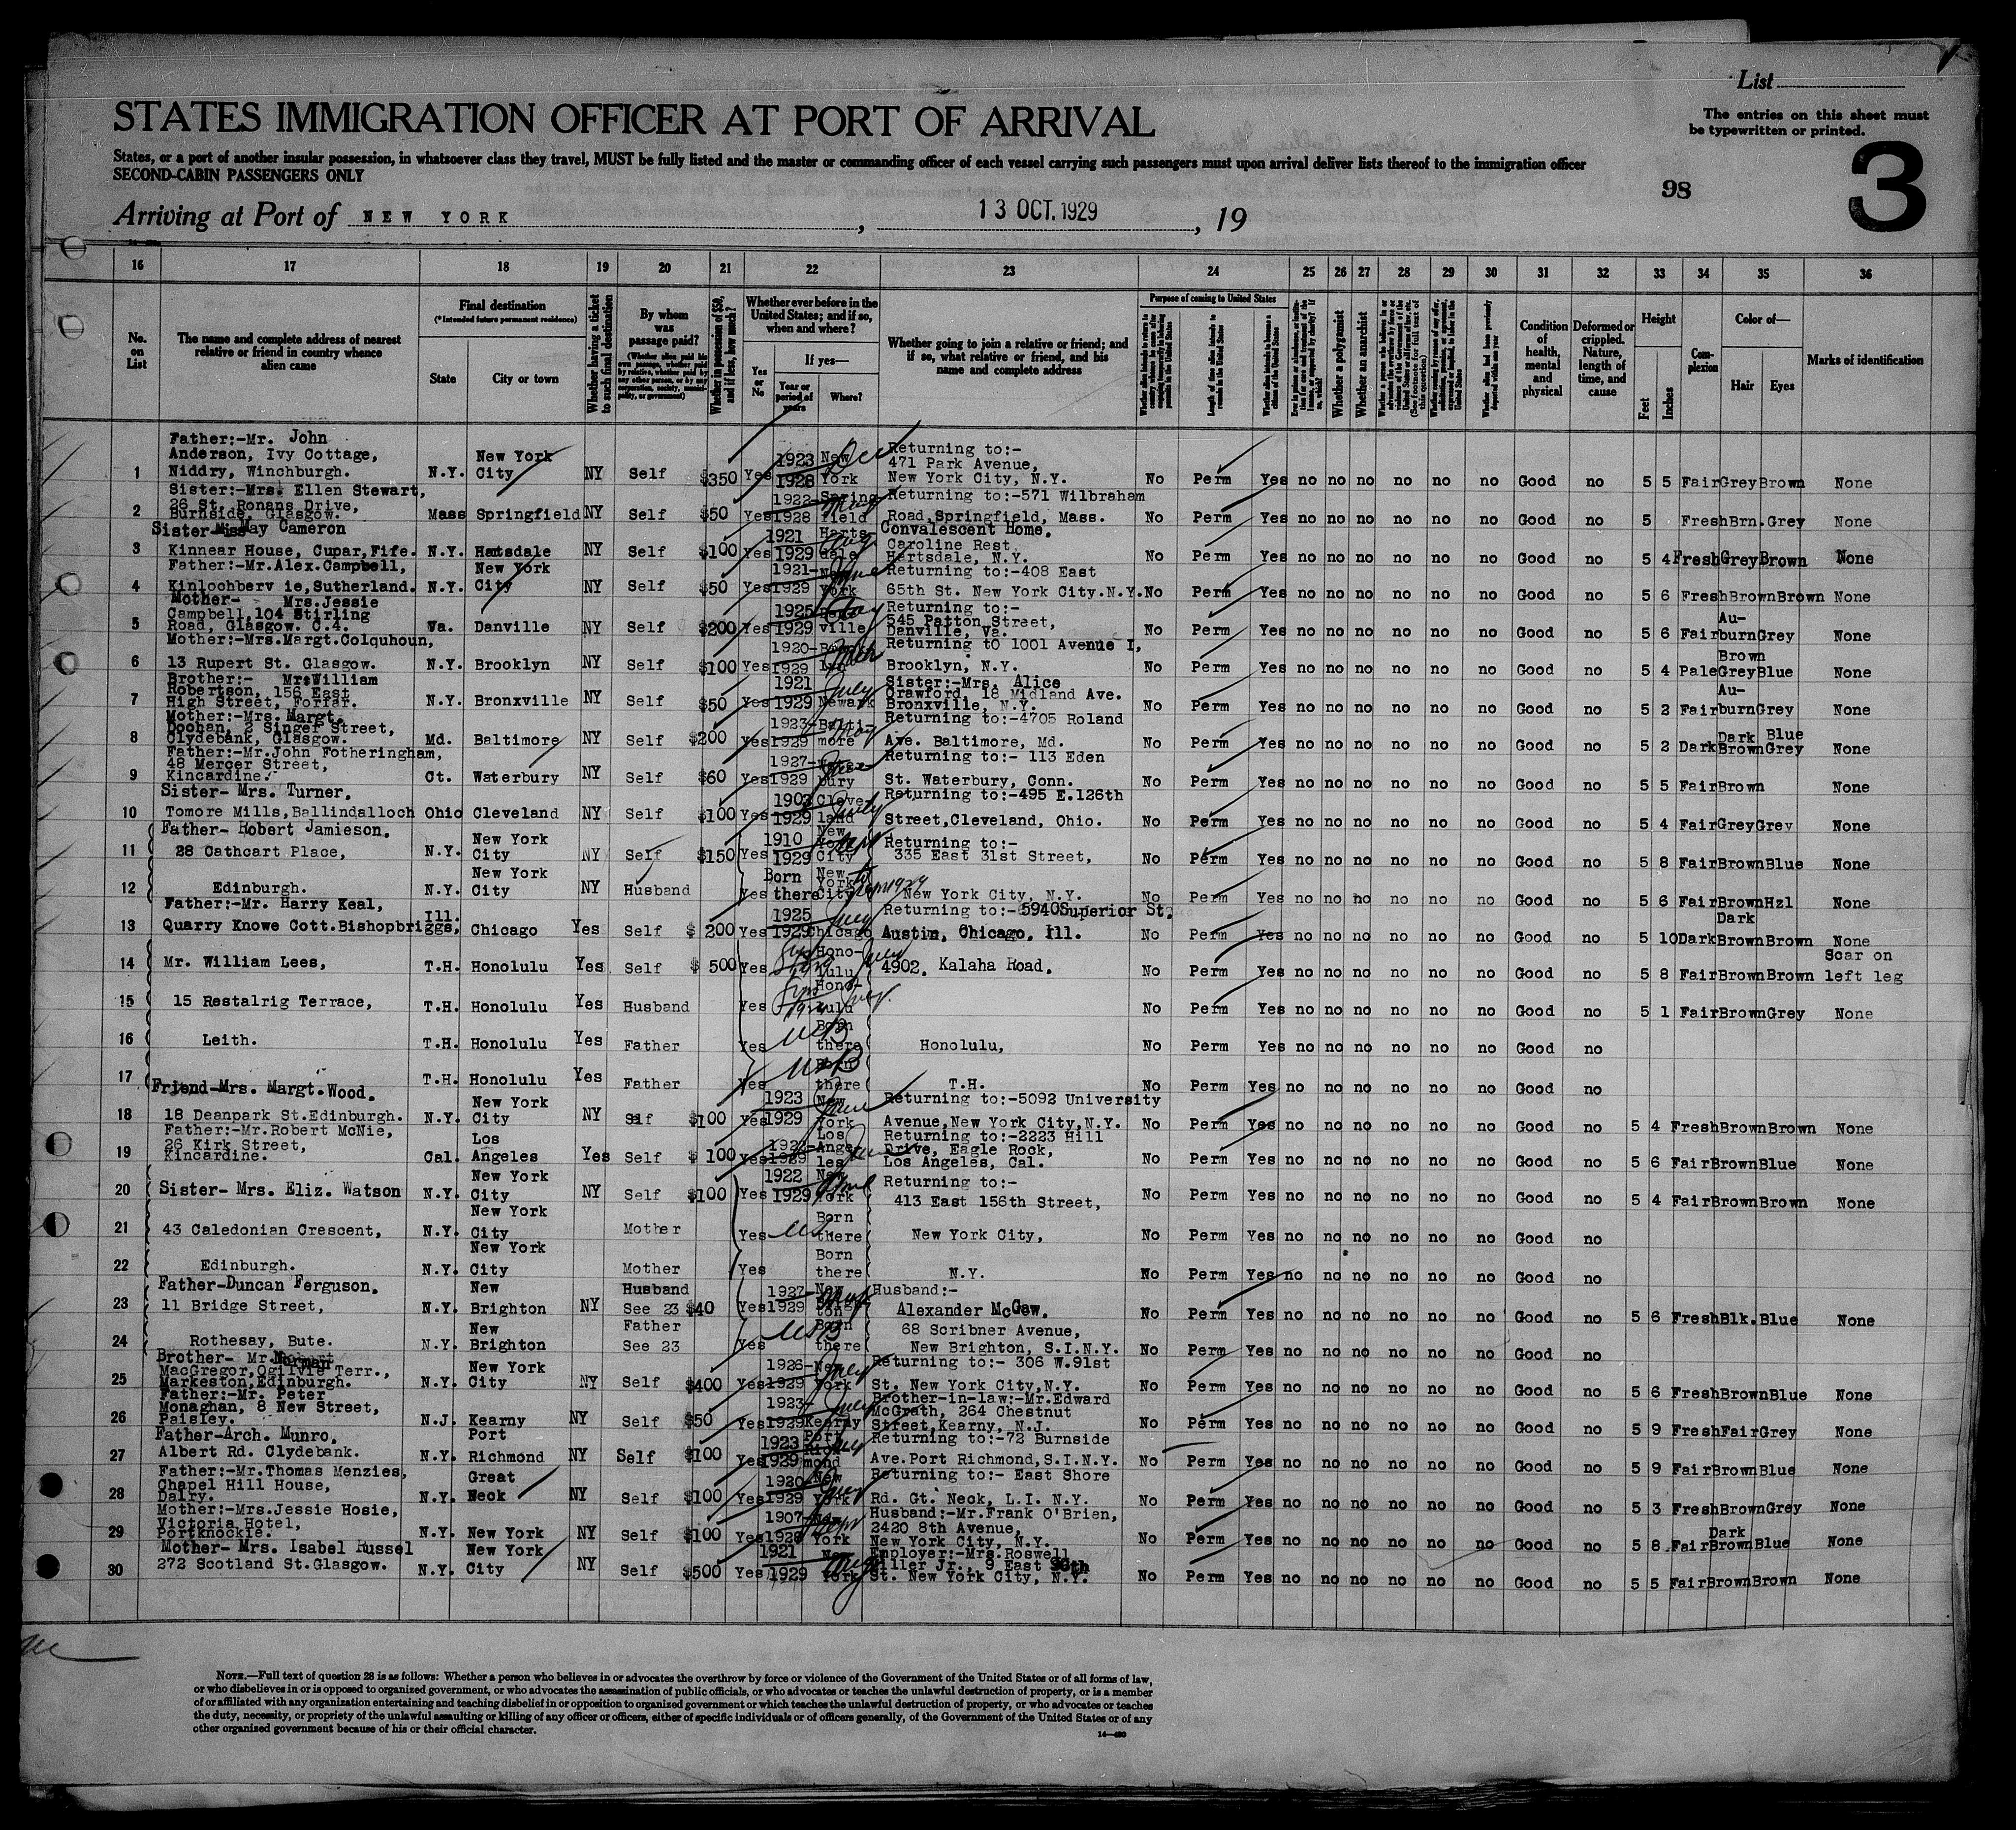 List
STATES IMMIGRATION OFFICER AT PORT OF ARRIVAL
The entries on this sheet must
be typewritten or printed.
States, or a port of another insular possession, in whatsoever class they travel, MUST be fully listed and the master or commanding officer of each vessel carrying such passengers must upon arrival deliver lists thereof to the immigration officer
SECOND-CABIN PASSENGERS ONLY
98
3
Arriving at Port of NEW YORK, 13 OCT. 1929, 19
16 17 18 19 20 21 22 23 24 25 26 27 28 29 30 31 32 33 34 35 36
No. on List
The name and complete address of nearest relative or friend in country whence alien came
Final destination
(*Intended future permanent residence)
State
City or town
Whether having a ticket to such final destination
By whom was passage paid?
(Whether alien paid his own passage, whether paid by relative, whether paid by any other person, or by any corporation, society, municipality, or government)
Whether in possession of $50, and if less, how much?
Whether ever before in the United States; and if so, when and where?
Yes or No
If yes—
Year or period of years
Where?
Whether going to join a relative or friend; and if so, what relative or friend, and his name and complete address
Purpose of coming to United States
Length of time alien intends to remain in the United States
Whether alien intends to become a citizen of the United States
Whether a polygamist
Whether an anarchist
Condition of health, mental and physical
Deformed or crippled. Nature, length of time, and cause
Height
Feet
Inches
Complexion
Color of—
Hair
Eyes
Marks of identification
1 Father:-Mr. John Anderson, Ivy Cottage, Niddry, Winchburgh. N.Y. New York City NY Self $350 Yes 1923 1928 New York Dec Returning to:- 471 Park Avenue, New York City, N.Y. No Perm Yes no no no no no no Good no 5 5 Fair Grey Brown None
2 Sister:-Mrs. Ellen Stewart, 26 St. Ronans Drive, Burnside, Glasgow. Mass Springfield NY Self $50 Yes 1922- 1928 Springfield Returning to:-571 Wilbraham Road, Springfield, Mass. No Perm Yes no no no no no no Good no 5 Fresh Brn. Grey None
3 Sister-Miss May Cameron Kinnear House, Cupar, Fife. N.Y. Hartsdale NY Self $100 Yes 1921 1929 Hartsdale Aug Convalescent Home. Caroline Rest, Hartsdale, N.Y. No Perm Yes no no no no no no Good no 5 4 Fresh Grey Brown None
4 Father:-Mr.Alex.Campbell, Kinlochberv ie, Sutherland. N.Y. New York City NY Self $50 Yes 1921- 1929 New York June Returning to:-408 East 65th St. New York City.N.Y. No Perm Yes no no no no no no Good no 5 6 Fresh Brown Brown None
5 Mother- Mrs.Jessie Campbell, 104 Stirling Road, Glasgow. C.4. Va. Danville NY Self $200 Yes 1925 1929 Danville Returning to:- 545 Patton Street, Danville, Va. No Perm Yes no no no no no no Good no 5 6 Fair Auburn Grey None
6 Mother:-Mrs.Margt.Colquhoun, 13 Rupert St. Glasgow. N.Y. Brooklyn NY Self $100 Yes 1920- 1929 Brooklyn Returning t0 1001 Avenue I, Brooklyn, N.Y. No Perm Yes no no no no no no Good no 5 4 Pale Brown Grey Blue None
7 Brother:- Mr.William Robertson, 156 East High Street, Forfar. N.Y. Bronxville NY Self $50 Yes 1921 1929 Newark July Sister:-Mrs. Alice Crawford, 18 Midland Ave. Bronxville, N.Y. No Perm Yes no no no no no no Good no 5 2 Fair Auburn Grey None
8 Mother:-Mrs. Margt. Doohan, 2 Singer Street, Clydebank, Glasgow. Md. Baltimore NY Self $200 Yes 1923- 1929 Baltimore May Returning to:-4705 Roland Ave. Baltimore, Md. No Perm Yes no no no no no no Good no 5 2 Dark Dark Brown Blue Grey None
9 Father:-Mr.John Fotheringham, 48 Mercer Street, Kincardine. Ct. Waterbury NY Self $60 Yes 1927- 1929 Waterbury June Returning to:- 113 Eden St. Waterbury, Conn. No Perm Yes no no no no no no Good no 5 5 Fair Brown None
10 Sister- Mrs. Turner. Tomore Mills, Ballindalloch Ohio Cleveland NY Self $100 Yes 1903 1929 Cleveland July Returning to:-495 E.126th Street, Cleveland, Ohio. No Perm Yes no no no no no no Good no 5 4 Fair Grey Grey None
11 Father- Robert Jamieson. 28 Cathcart Place, N.Y. New York City NY Self $150 Yes 1910 1929 New York City Sept Returning to:- 335 East 31st Street, No Perm Yes no no no no no no Good no 5 8 Fair Brown Blue None
12 Edinburgh. N.Y. New York City NY Husband Yes Born there New York City New York City, N.Y. No Perm Yes no no no no no no Good no 5 6 Fair Brown Hzl None
13 Father:-Mr. Harry Keal, Quarry Knowe Cott. Bishopbriggs, Ill. Chicago Yes Self $ 200 Yes 1925 1929 Chicago July Returning to:-5940 Superior St. Austin, Chicago, Ill. No Perm Yes no no no no no no Good no 5 10 Dark Dark Brown Brown None
14 Mr. William Lees, T.H. Honolulu Yes Self $ 500 Yes Honolulu July 4902. Kalaha Road. No Perm Yes no no no no no no Good no 5 8 Fair Brown Brown Scar on left leg
15 15 Restalrig Terrace, T.H. Honolulu Yes Husband Yes Honolulu No Perm Yes no no no no no no Good no 5 1 Fair Brown Grey None
16 Leith. T.H. Honolulu Yes Father Yes USB Born there Honolulu, No Perm Yes no no no no no no Good no
17 T.H. Honolulu Yes Father Yes USB Born there T.H. No Perm Yes no no no no no no Good no
18 Friend-Mrs. Margt. Wood. 18 Deanpark St. Edinburgh. N.Y. New York City NY Self $100 Yes 1923 1929 New York June Returning to:-5092 University Avenue, New York City, N.Y. No Perm Yes no no no no no no Good no 5 4 Fresh Brown Brown None
19 Father:-Mr.Robert McNie, 26 Kirk Street, Kincardine. Cal. Los Angeles Yes Self $ 100 Yes 1929 Los Angeles June Returning to:-2223 Hill Drive, Eagle Rock, Los Angeles, Cal. No Perm Yes no no no no no no Good no 5 6 Fair Brown Blue None
20 Sister- Mrs. Eliz. Watson N.Y. New York City NY Self $100 Yes 1922 1929 New York June Returning to:- 413 East 156th Street, No Perm Yes no no no no no no Good no 5 4 Fair Brown Brown None
21 43 Caledonian Crescent, N.Y. New York City Mother Yes Born there New York City, No Perm Yes no no no no no no Good no
22 Edinburgh. N.Y. New York City Mother Yes Born there N.Y. No Perm Yes no no no no no no Good no
23 Father-Duncan Ferguson. 11 Bridge Street, N.Y. New Brighton NY Husband See 23 $40 Yes 1927- 1929 Husband:- Alexander McGaw. No Perm Yes no no no no no no Good no 5 6 Fresh Blk. Blue None
24 Rothesay, Bute. N.Y. New Brighton Father See 23 Yes USB Born there 68 Scribner Avenue, New Brighton, S.I.N.Y. No Perm Yes no no no no no no Good no
25 Brother- Mr. Norman MacGregor, Ogilvie Terr., Markeston, Edinburgh. N.Y. New York City NY Self $400 Yes 1926- 1929 New York July Returning to:- 306 W.91st St. New York City, N.Y. No Perm Yes no no no no no no Good no 5 6 Fresh Brown Blue None
26 Father:-Mr. Peter Monaghan, 8 New Street, Paisley. N.J. Kearny NY Self $50 Yes 1923- 1929 Kearny July Brother-in-law:-Mr.Edward McGrath, 264 Chestnut Street, Kearny, N.J. No Perm Yes no no no no no no Good no 5 9 Fresh Fair Grey None
27 Father-Arch. Munro. Albert Rd. Clydebank. N.Y. Port Richmond NY Self $100 Yes 1923 1929 Port Richmond Returning to:-72 Burnside Ave. Port Richmond, S.I.N.Y. No Perm Yes no no no no no no Good no 5 9 Fair Brown Blue None
28 Father:-Mr.Thomas Menzies, Chapel Hill House, Dalry. N.Y. Great Neck NY Self $100 Yes 1920- 1929 New York Returning to:- East Shore Rd. Gt. Neck, L.I. N.Y. No Perm Yes no no no no no no Good no 5 3 Fresh Brown Grey None
29 Mother:-Mrs.Jessie Hosie, Victoria Hotel, Portknockie. N.Y. New York NY Self $100 Yes 1907- 1928 New York Husband:-Mr.Frank O'Brien, 2420 8th Avenue, New York City, N.Y. No Perm Yes no no no no no no Good no 5 8 Fair Dark Brown Blue None
30 Mother- Mrs. Isabel Russel 272 Scotland St. Glasgow. N.Y. New York City NY Self $500 Yes 1921 1929 New York Aug Employer:-Mrs. Roswell Miller Jr., 9 East 96th St. New York City, N.Y. No Perm Yes no no no no no no Good no 5 5 Fair Brown Brown None
NOTE.—Full text of question 28 is as follows: Whether a person who believes in or advocates the overthrow by force or violence of the Government of the United States or of all forms of law,
or who disbelieves in or is opposed to organized government, or who advocates the assassination of public officials, or who advocates or teaches the unlawful destruction of property, or is a member
of or affiliated with any organization entertaining and teaching disbelief in or opposition to organized government or which teaches the unlawful destruction of property, or who advocates or teaches
the duty, necessity, or propriety of the unlawful assaulting or killing of any officer or officers, either of specific individuals or of officers generally, of the Government of the United States or of any
other organized government because of his or their official character.